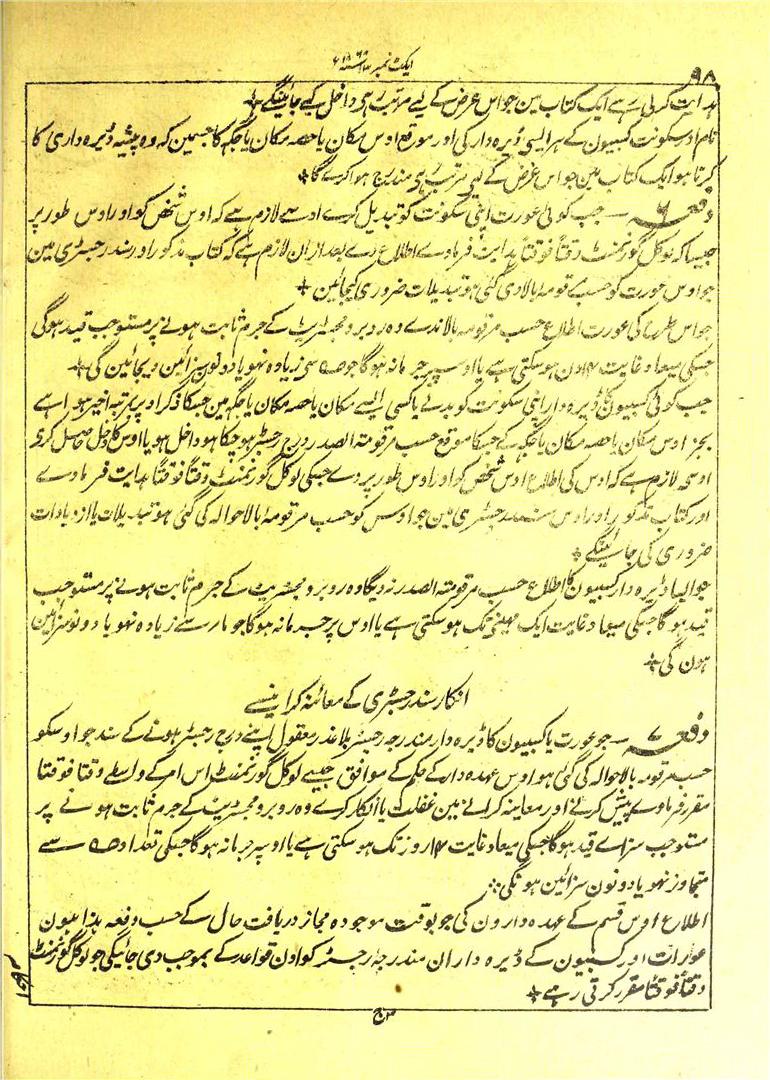 ایکٹ نمبر ۱۴ سنہ ۱۸۶۸ء
۹۸
ہدایت کرتی رہے ایک کتاب مین جو اس غرض کے لیے مرتب رہی داخل کیے جائینگے +
نام اور سکونت کسبیون کے ہر ایسی ڈیرہ دار کی اور موقع اوس مکان یا حصہ مکان یا جگہ کا جسمین کہ وہ پیشہ ڈیرہ داری کا
کرتا ہو ایک کتاب مین جو اس غرض کے لیے مرتب رہی مندرج ہوا کرے گا +
دفعہ ۶ — جب کوئی عورت اپنی سکونت کو تبدیل کرے اوسے لازم ہے کہ اوس شخص کو اور اوس طور پر
جیسا کہ لوکل گورنمنٹ وقتاً فوقتاً ہدایت فرماوے اطلاع دے بعد ازان لازم ہے کہ کتاب مذکور اور سند رجسٹری مین
جو اوس عورت کو حسب مرقومہ بالا دی گئی ہو تبدیلات ضروری کیجائین +
جو اس طرح کی عورت اطلاع حسب مرقومہ بالا ندے وہ روبرو مجسٹریٹ کے جرم ثابت ہونے پر مستوجب قید ہوگی
جسکی میعاد غایت ۱۴ دن ہوسکتی ہے یا اوسپر جرمانہ ہوگا جو سے زیادہ نہو یا دونون سزائین دیجائین گی +
جب کوئی کسبیون کا ڈیرہ دار اپنی سکونت کو بدلے یا کسی ایسے مکان یا حصہ مکان یا جگہ مین جسکا ذکر اوپر مرتبہ اخیر ہوا ہے
بجز اوس مکان یا حصہ مکان یا جگہ کے جسکا موقع حسب مرقومۃ الصدر درج رجسٹر ہوچکا ہو داخل ہو یا اوس کا دخل حاصل کری
اوسی لازم ہے کہ اوس کی اطلاع اوس شخص کو اور اوس طور پر دے جسکی لوکل گورنمنٹ وقتاً فوقتاً ہدایت فرماوے
اور کتاب مذکور اور اوس سند رجسٹری مین جو اوس کو حسب مرقومہ بالا حوالہ کی گئی ہو تبدیلات یا ازدیادات
ضروری کی جائینگے +
جو ایسا ڈیرہ دار کسبیون کا اطلاع حسب مرقومۃ الصدر ندیگا وہ روبرو مجسٹریٹ کے جرم ثابت ہونے پر مستوجب
قید ہوگا جسکی میعاد غایت ایک مہینے تک ہوسکتی ہے یا اوس پر جرمانہ ہوگا جو سے زیادہ نہو یا دونو سزائین
ہون گی +
انکار سند رجسٹری کے معائنہ کرانیسے
دفعہ ۷ — جو عورت یا کسبیون کا ڈیرہ دار مندرجہ رجسٹر بلا عذر معقول اپنے درج رجسٹر ہونے کے سند جو اوسکو
حسب مرقومہ بالا حوالہ کی گئی ہو اوس عہدہ دار کے حکم کے موافق جسے لوکل گورنمنٹ اس امر کے واسطے وقتاً فوقتاً
مقرر فرماوے پیش کرنے اور معاینہ کرانے مین غفلت یا انکار کرے وہ روبرو مجسٹریٹ کے جرم ثابت ہونے پر
مستوجب سزاے قید ہوگا جسکی میعاد غایت ۱۴ روز تک ہوسکتی ہے یا اوسپر جرمانہ ہوگا جسکی تعداد سے
متجاوز نہو یا دونون سزائین ہونگی +
اطلاع اوس قسم کے عہدہ دارون کی جو بوقت موجودہ مجاز دریافت حال کے حسب دفعہ ہذا ہون
عورات اور کسبیون کے ڈیرہ داران مندرجہ رجسٹر کو اون قواعد کے بموجب دی جائیگی جو لوکل گورنمنٹ
وقتاً فوقتاً مقرر کرتی رہے +